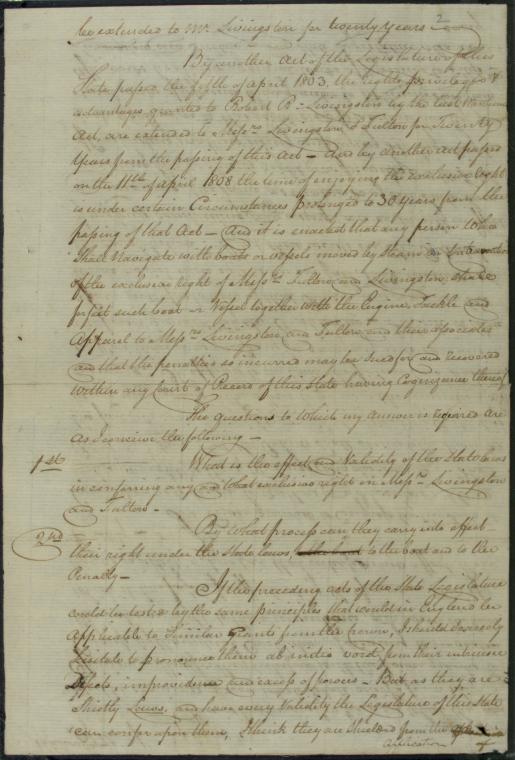 be extended to Mr. Livingston for twenty Years — 2
By another Act of the Legislature of this
State passed the fifth of April 1803, the rights privileges &
advantages granted to Robert R. Livingston by the last mentioned
Act, are extended to Messrs Livingston & Fulton for Twenty
Years from the passing of this Act — And by another Act passed
on the 11th of April 1808 the time of enjoying the exclusive right
is under certain Circumstances prolonged to 30 years from the
passing of that Act — And it is enacted that any person who
shall Navigate with boats or vessels moved by steam in
of the exclusive right of Messrs Fulton and Livingston shall
forfeit such boat or Vessel together with the Engine, Tackle and
Apparel to Messrs Livingston and Fulton and their associates
and that the penalties so incurred may be Sued for and recovered
within any Court of Record of this State having Cognizance thereof
The questions to which my answer is required are
as I conceive the following —
1st What is the effect and Validity of the State laws
in conferring any and what exclusive right in Messrs Livingston
and Fulton —
2nd By What process can they carry into effect
their right under the State laws, to the boat and to the
Penalty —
If the preceding acts of the State Legislature
could be tested by the same principles that would in England be
Applicable to Similar Grants from the crown, I should scarcely
hesitate to pronounce them ab initio void from their intrinsic
defects, improvidence and excess of powers — But as they are
Strictly Laws, and have every Validity the Legislature of this State
can confer upon them, I think they are Shielded from the
application